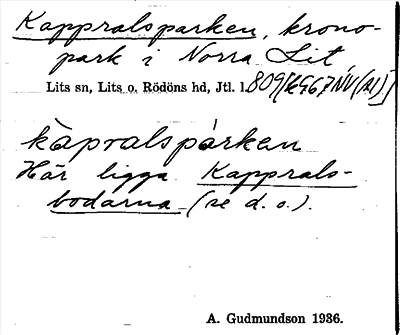 Kappralsparken, krono-
park i Norra Lit
Lits sn, Lits o. Rödöns hd, Jtl. l. 809
kàpralspárken
Här ligga Kapprals-
bodarna (se d. o.).
A. Gudmundson 1936.